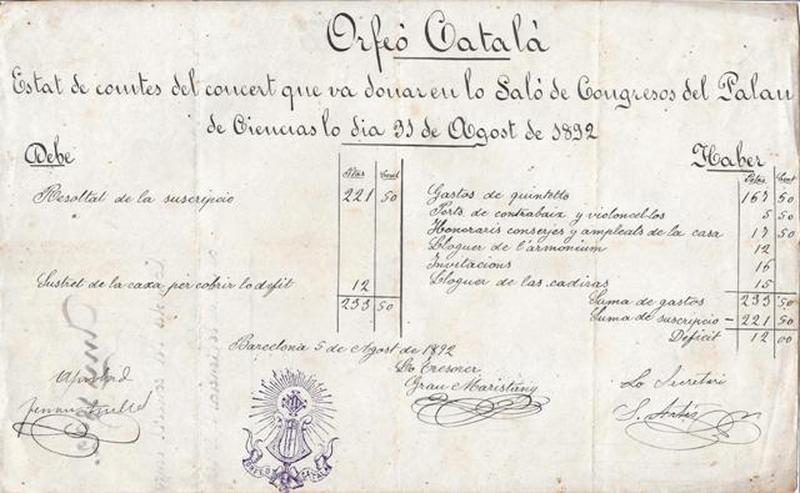 Orfeó Català
Estat de comtes del concert que va donar en lo Saló de Congresos del Palau
de Ciencias lo dia 31 de Agost de 1892
Debe
Haber
Ptas Cent
Resoltat de la suscripcio 221 50
Sustret de la caxa per cobrir lo defit 12
233 50
Ptas Cent
Gastos de quintetto 167 50
Ports de contrabaix y violoncel·los 5 50
Honoraris conserjes y ampleats de la casa 17 50
Lloguer de l'armónium 12
Invitacions 16
Lloguer de las cadiras 15
Suma de gastos 233 50
Suma de suscripcio - 221 50
Deficit 12 00
Barcelona 5 de Agost de 1892
Lo Tresorer
Grau Maristany
Lo Secretari
S. Artés
ORFEÓ CATALÀ